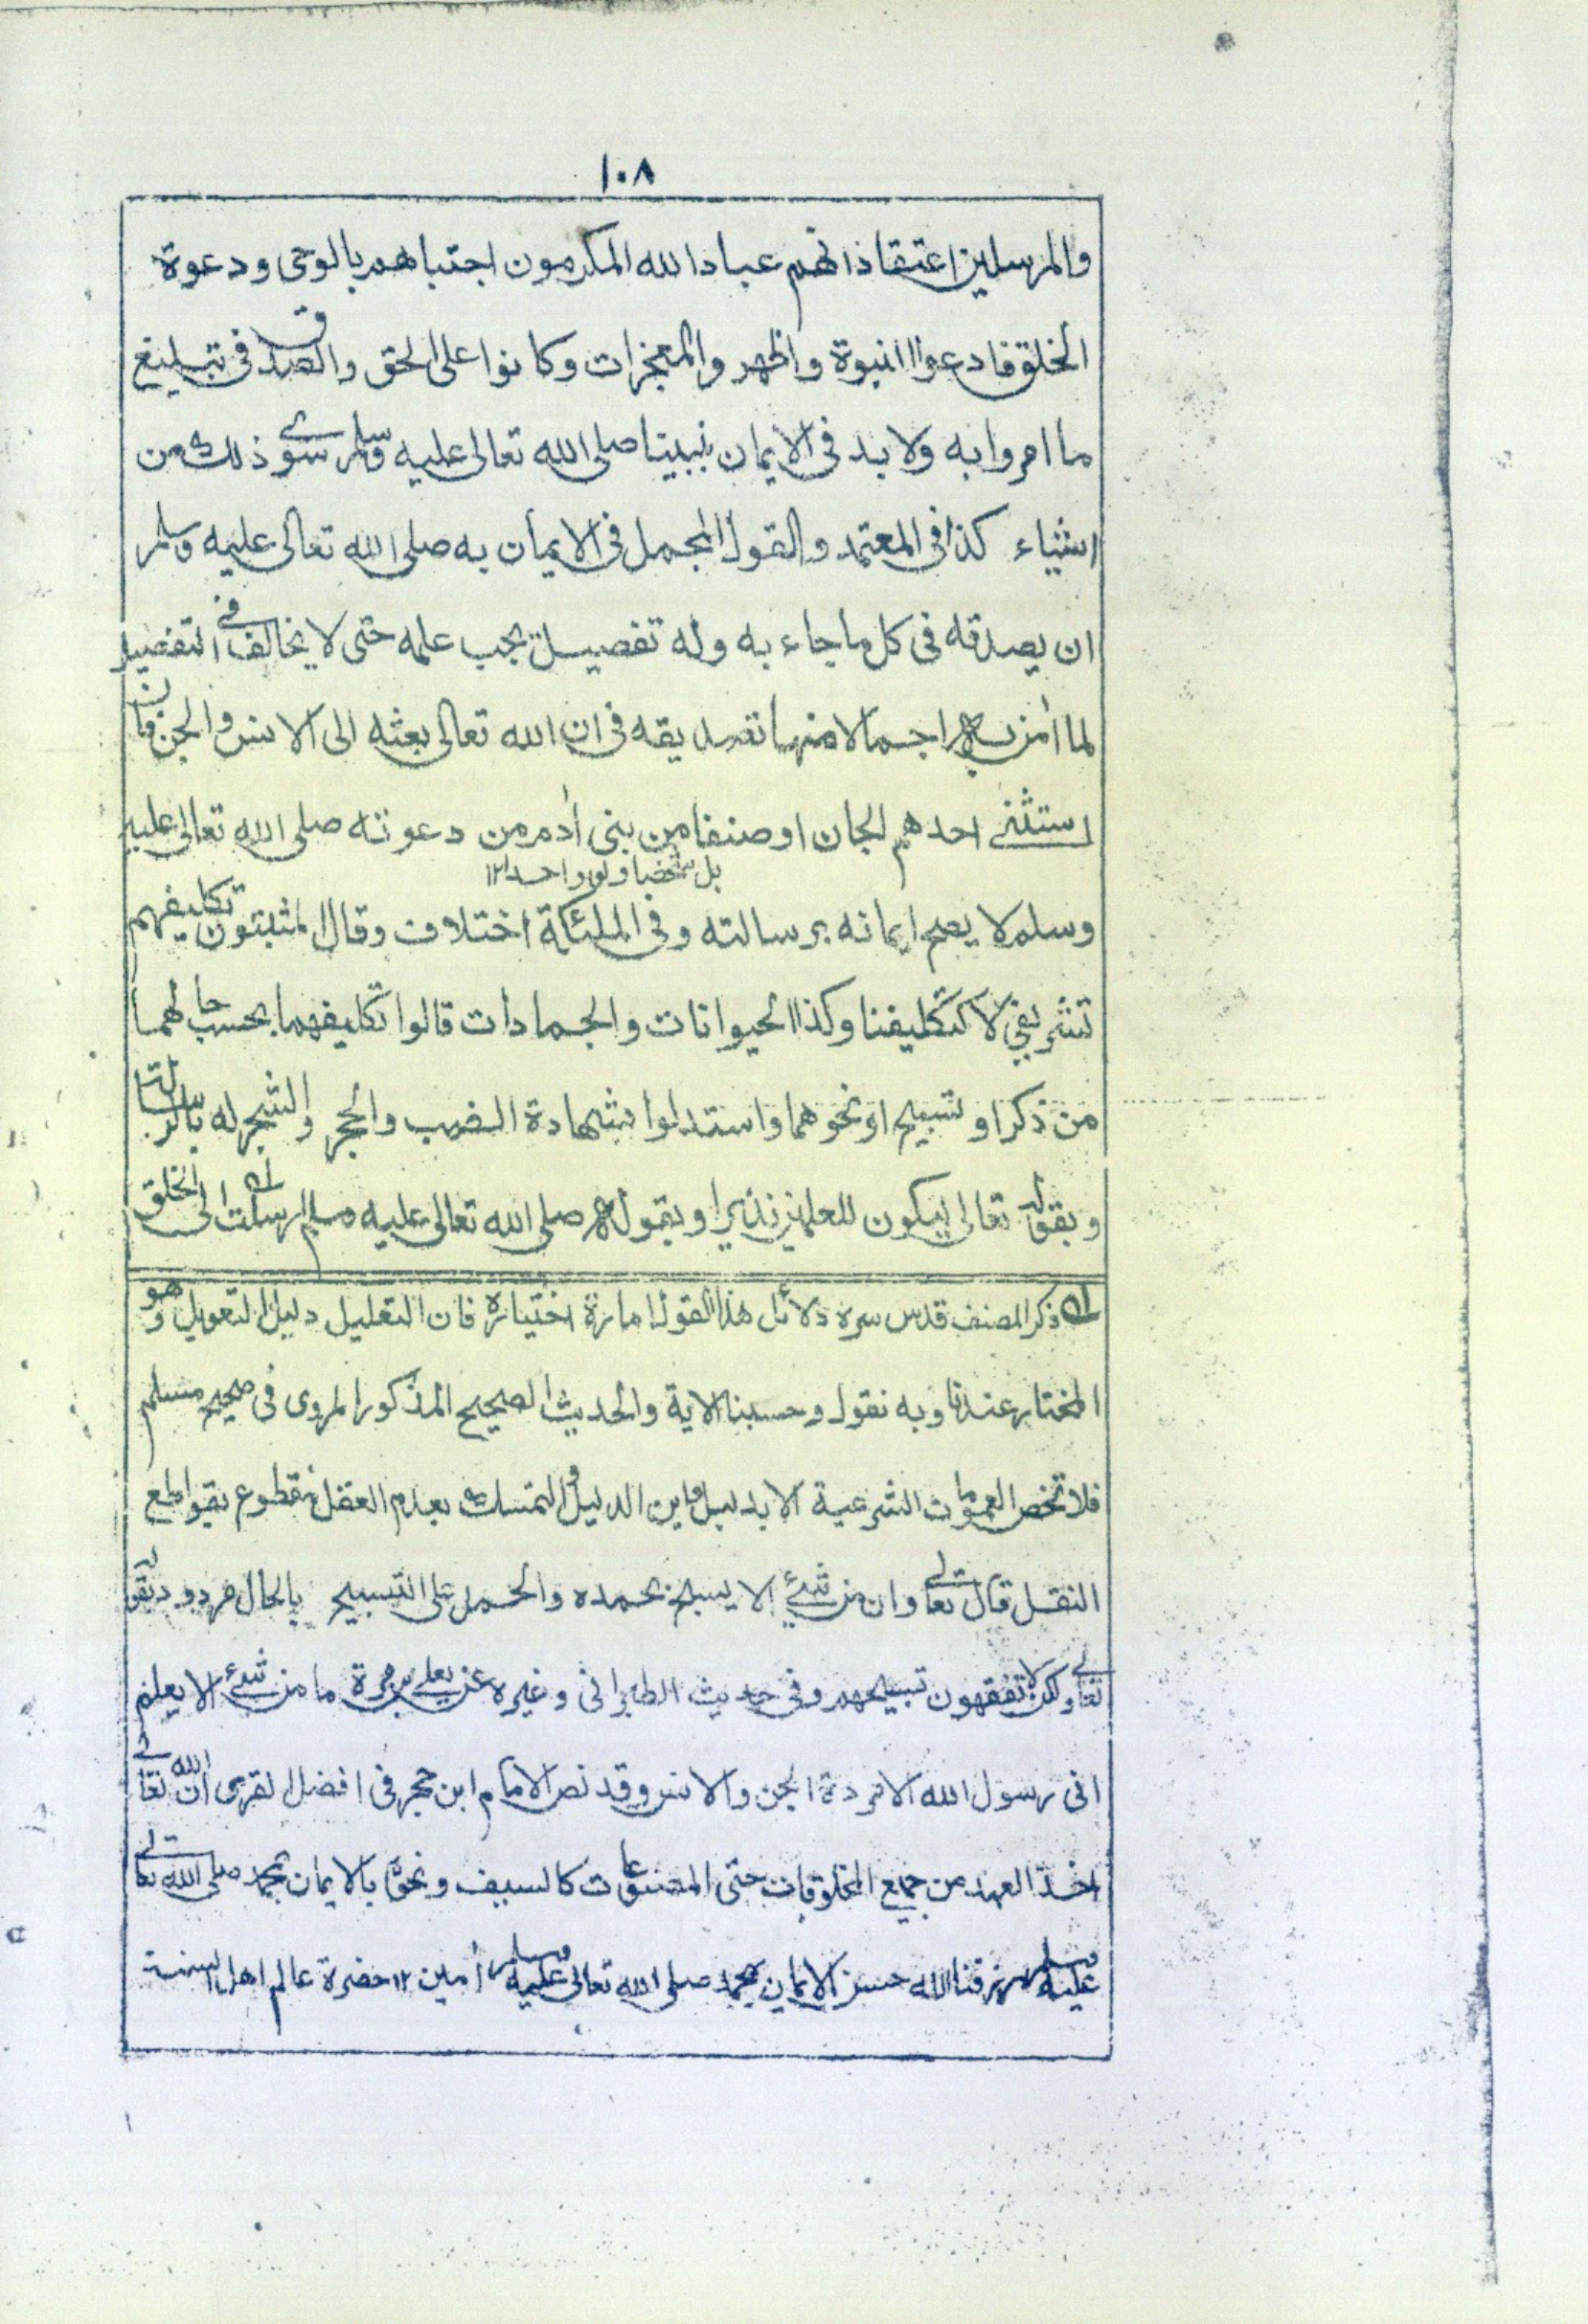 ١٠٨
والمرسلين اعتقاد انهم عباد الله المكرمون اجتباهم بالوحى ودعوة
الخلق فادعوا النبوة واظهروا المعجزات وكانوا على الحق والصدق فى تبليغ
ما امروا به ولا بد فى الايمان بنبينا صلى الله تعالى عليه وسلم سوى ذلك من
اشياء كذا فى المعتمد والقول المجمل فى الايمان به صلى الله تعالى عليه وسلم
ان يصدقه فى كل ما جاء به وله تفصيل يجب علمه حتى لا يخالف فى التفصيل
لما اٰمن به اجمالا منها تصديقه فى ان الله تعالى بعثه الى الانس والجن فان
استثنى احدهم الجان او صنفا من بنى اٰدم من دعوته صلى الله تعالى عليه
بل شخصا ولو واحدا ١٢
وسلم لا يصح ايمانه برسالته وفى الملئكة اختلاف وقال المثبتون تكليفهم
تشريفى لا كتكليفنا وكذا الحيوانات والجمادات قالوا تكليفهما بحسب حالهما
من ذكر او تسبيح او نحوهما واستدلوا بشهادة الضب والحجر والشجر له بالرسالة
وبقوله تعالى ليكون للعلمين نذيرا وبقوله صلى الله تعالى عليه وسلم ارسلت الى الخلق
لـه ذكر المصنف قدس سره دلائل هذا القول امارة اختياره فان التعليل دليل التعويل وهو
المختار عندنا وبه نقول وحسبنا الاية والحديث الصحيح المذكور المروى فى صحيح مسلم
فلا تخص العمومات الشرعية الا بدليل واين الدليل والتمسك بعدم العقل مقطوع بقواطع
النقل قال تعالى وان من شئ الا يسبح بحمده والحمل على التسبيح بالحال مردود بقوله
تعالى ولكن لا تفقهون تسبيحهم وفى حديث الطبرانى وغيره عن يعلى بن مرة ما من شئ الا يعلم
انى رسول الله الا مردة الجن والانس وقد نص الامام ابن حجر فى افضل القرى ان الله تعالى
اخذ العهد من جميع المخلوقات حتى المصنوعات كالسيف ونحوه بالايمان بمحمد صلى الله تعالى
عليه وسلم رزقنا الله حسن الايمان بمحمد صلى الله تعالى عليه وسلم اٰمين ١٢ حضرة عالم اهل السنة